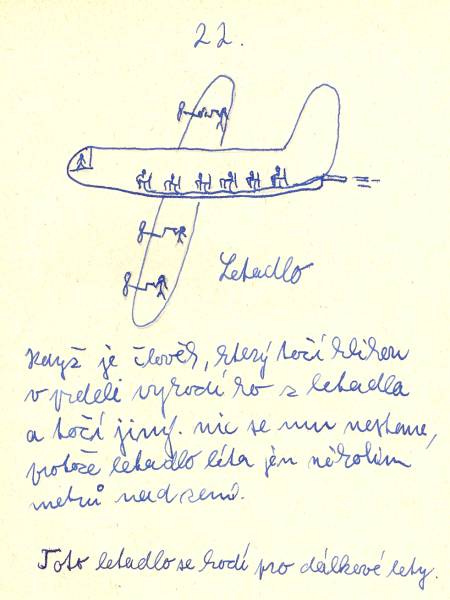 22.
Letadlo
Když je člověk, který točí klikou
v prdeli vyhodí ho z letadla
a točí jiný. nic se mu nestane,
protože letadlo léta jen několik
metrů nad zemí.
Toto letadlo se hodí pro dálkové lety.